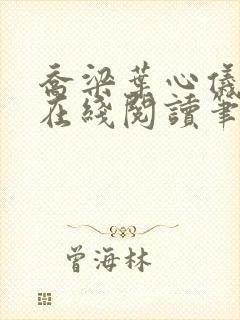 喬梁葉心儀
在綫閱讀筆
曾海林